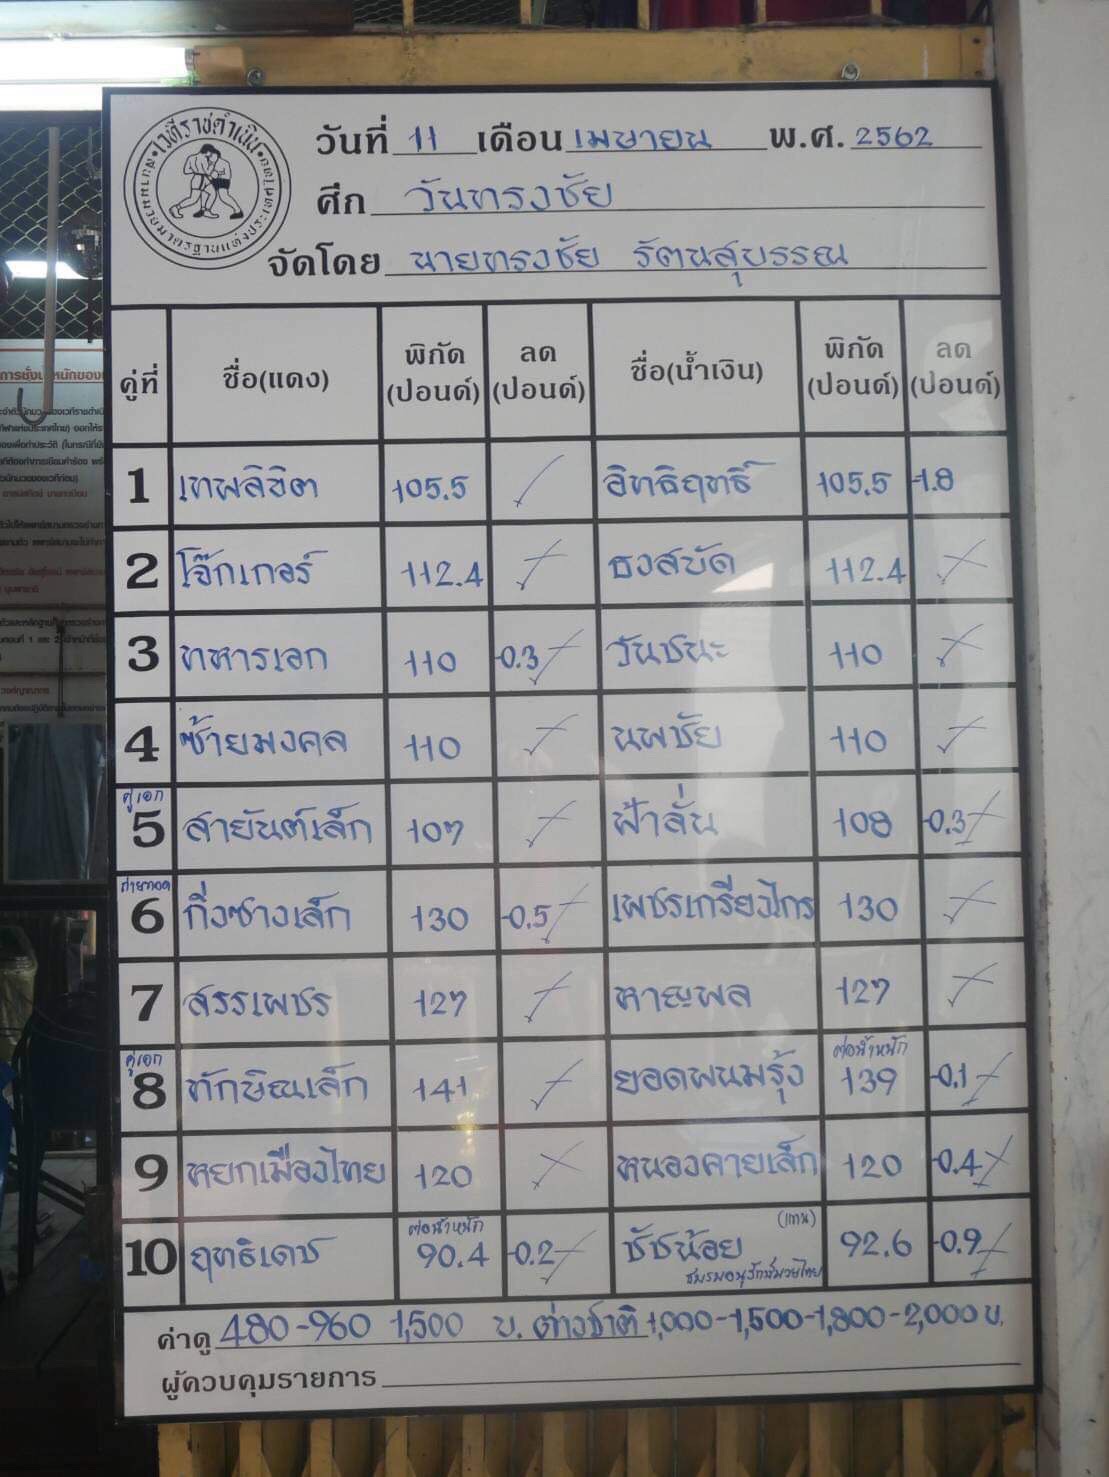 เวทีราชดำเนิน
สนามมวยมาตรฐานแห่งประเทศไทย
วันที่ 11 เดือน เมษายน พ.ศ. 2562
ศึก วันทรงชัย
จัดโดย นายทรงชัย รัตนสุบรรณ
คู่ที่ ชื่อ(แดง) พิกัด (ปอนด์) ลด (ปอนด์) ชื่อ(น้ำเงิน) พิกัด (ปอนด์) ลด (ปอนด์)
1 เทพลิขิต 105.5 อิทธิฤทธิ์ 105.5 -1.8
2 โจ๊กเกอร์ 112.4 ธงสบัด 112.4
3 ทหารเอก 110 -0.3 วันชนะ 110
4 ซ้ายมงคล 110 นพชัย 110
คู่เอก
5 สายันต์เล็ก 107 ฟ้าลั่น 108 -0.3
ถ่ายทอด
6 กิ่งซางเล็ก 130 -0.5 เพชรเกรียงไกร 130
7 สรรเพชร 127 หาญพล 127
คู่เอก ต่อน้ำหนัก
8 ทักษิณเล็ก 141 ยอดพนมรุ้ง 139 -0.1
9 หยกเมืองไทย 120 หนองคายเล็ก 120 -0.4
ต่อน้ำหนัก (แทน)
10 ฤทธิเดช 90.4 -0.2 ชัชน้อย 92.6 -0.9
ชมรมอนุรักษ์มวยไทย
ค่าดู 480-960 1,500 บ. ต่างชาติ 1,000-1,500-1,800-2,000 บ.
ผู้ควบคุมรายการ